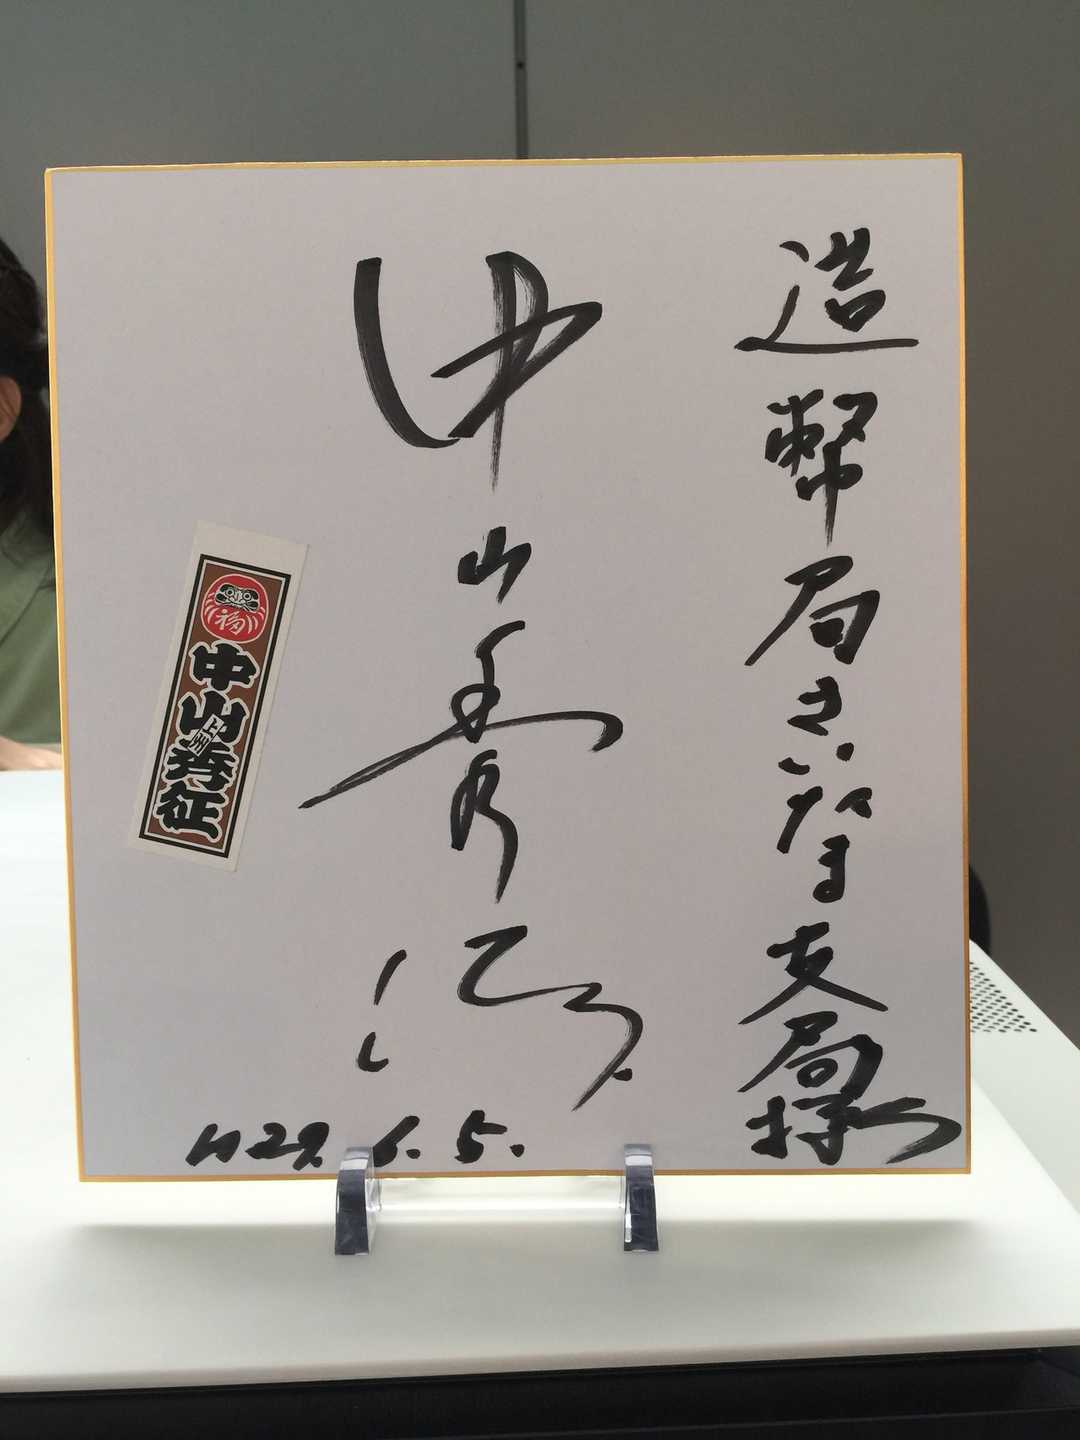 造幣局さいたま支局様
中山秀征
H27.6.5.
福
中山秀征
上州